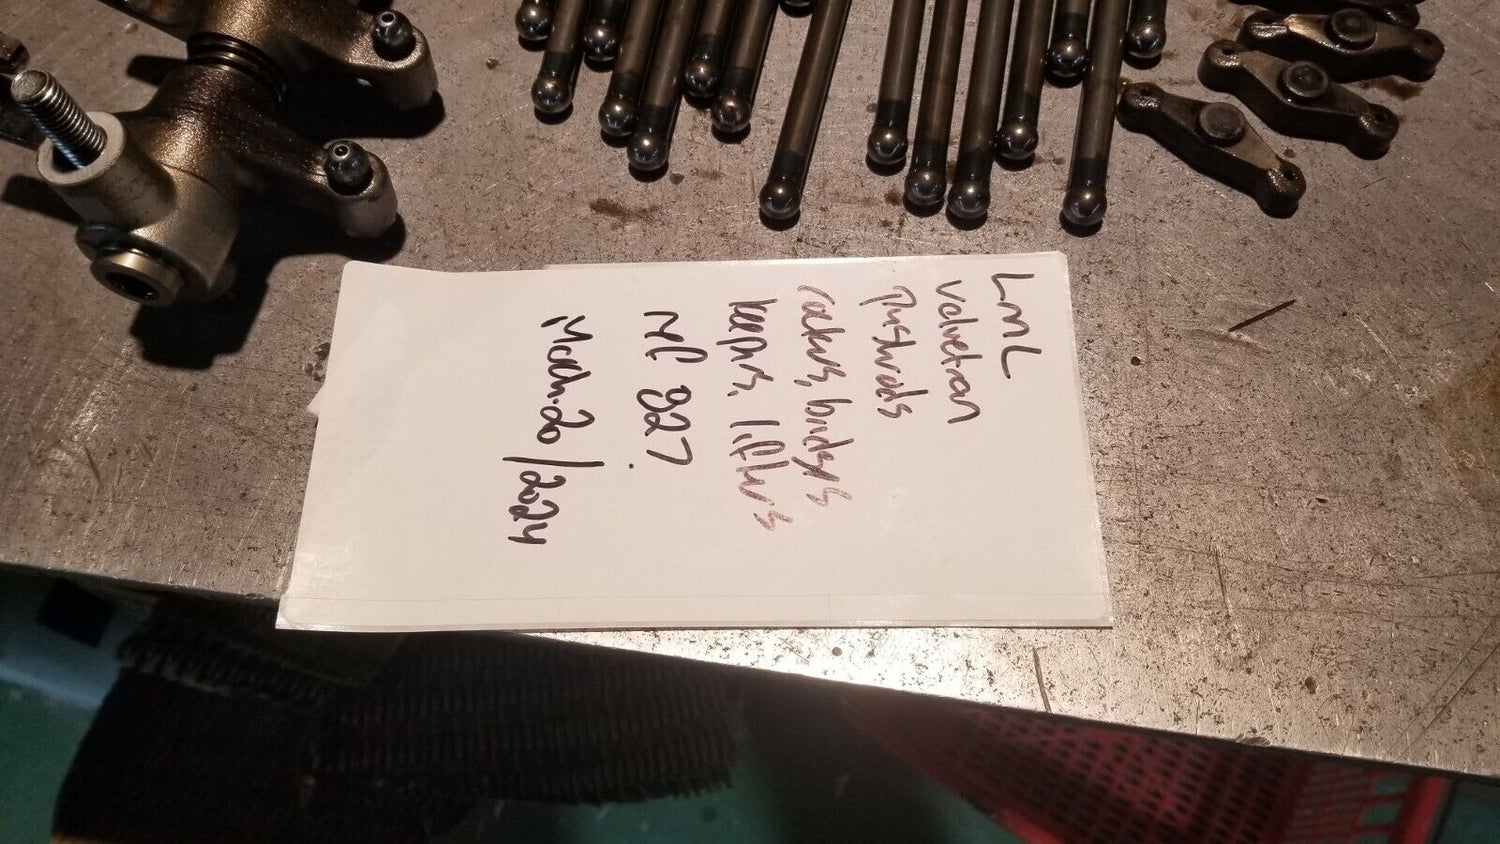 LML
Valvetran
Pushrods
rockers, bridges
keepers, lifters
ref 827
March.20/2024